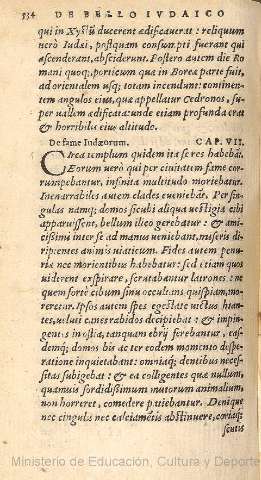 534 DE BELLO IVDAICO
qui in Xystū ducerent ædificauerat : reliquum
verò Iudæi, postquam consumpti fuerant qui
ascenderant, absciderunt. Postero autem die Ro
mani quoq; porticum quæ in Borea parte fuit,
ad orientalem usq; totam incendunt : coninen-
tem angulos eius, quæ appellatur Cedronos, su-
per uallem ædificata: unde etiam profunda erat
& horribilis eius altitudo.
De fame Iudæorum. CAP. VII.
Circa templum quidem ita se res habebāt.
Eorum uerò qui per ciuitatem fame cor-
rumpebantur, infinita multitudo moriebatur.
Inenarrabiles autem clades eueniebāt. Per sin-
gulas namq; domos sicubi aliqua uestigia cibi
apparuissent, bellum illico gerebatur : & ami-
cissimi inter se ad manus ueniebant, miseris di-
ripientes animis uiaticum. Fides autem penu-
riæ nec morientibus habebatur : sed etiam quos
uiderent exspirare, scrutabantur latrones : ne
quem fortè cibum sinu occultans quispiam, mo-
reretur. Ipsos autem spes egestate uictus hian-
tes, uelut canes rabidos decipiebat : & impin-
gentes in ostia, tanquam ebrij ferebantur, eas-
demq; domos bis ac ter eodem momento despe-
ratione inquietabant: omniaq; dentibus neces-
sitas subigebat : & ea colligentes quæ nullum,
quamuis sordidissimum mutorum animalium,
non horreret, comedere patiebantur. Denique
nec cingulis nec calciamētis abstinuere, coriaq;
scutis
Ministerio de Educación, Cultura y Deporte